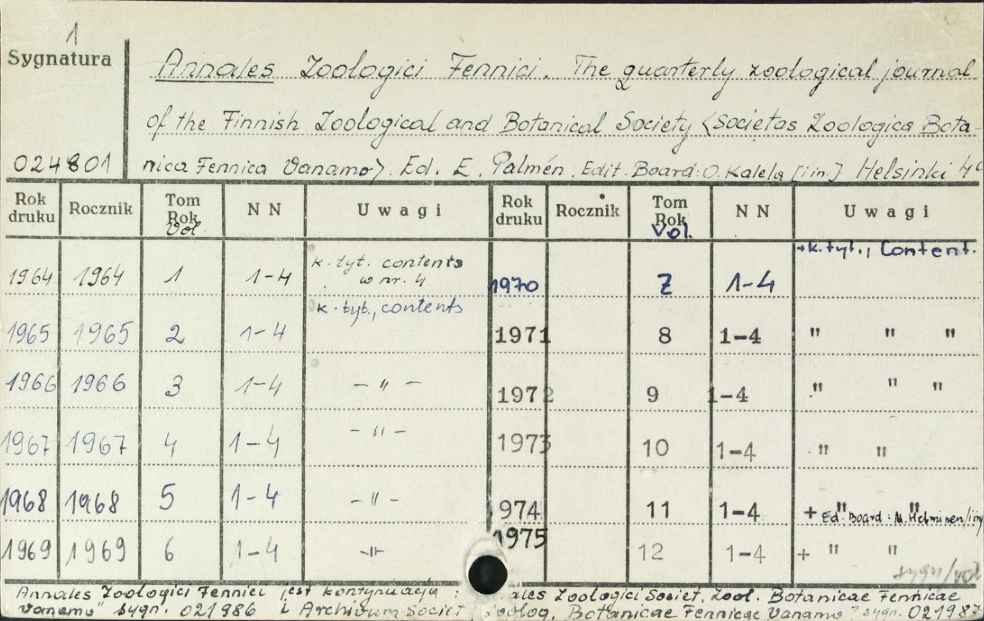 1
Sygnatura
Annales Zoologici Fennici. The quarterly zoological journal
of the Finnish Zoological and Botanical Society <Societas Zoologica Bota-
024801 nica Fennica Vanamo>. Ed. E. Palmén. Edit. Board: O. Kalela [i in.] Helsinki 4°
Rok druku Rocznik Tom Rok Vol N N Uwagi Rok druku Rocznik Tom Rok Vol. N N Uwagi
1964 1964 1 1-4 k. tyt. contents w nr. 4 1970 7 1-4 +k. tyt., Content.
1965 1965 2 1-4 k. tyt., contents 1971 8 1-4 " " "
1966 1966 3 1-4 - " - 1972 9 1-4 " " "
1967 1967 4 1-4 - " - 1973 10 1-4 " "
1968 1968 5 1-4 - " - 974 11 1-4 + " " Ed. Board: M. Helminen
1969 1969 6 1-4 -"- 1975 12 1-4 + " "
Annales Zoologici Fennici jest kontynuacją : ales Zoologici Societ. Zool. Botanicae Fennicae
Vanamo" sygn. 021986 i Archivum Societ Zoolog. Botanicae Fennicae Vanamo" sygn. 021987